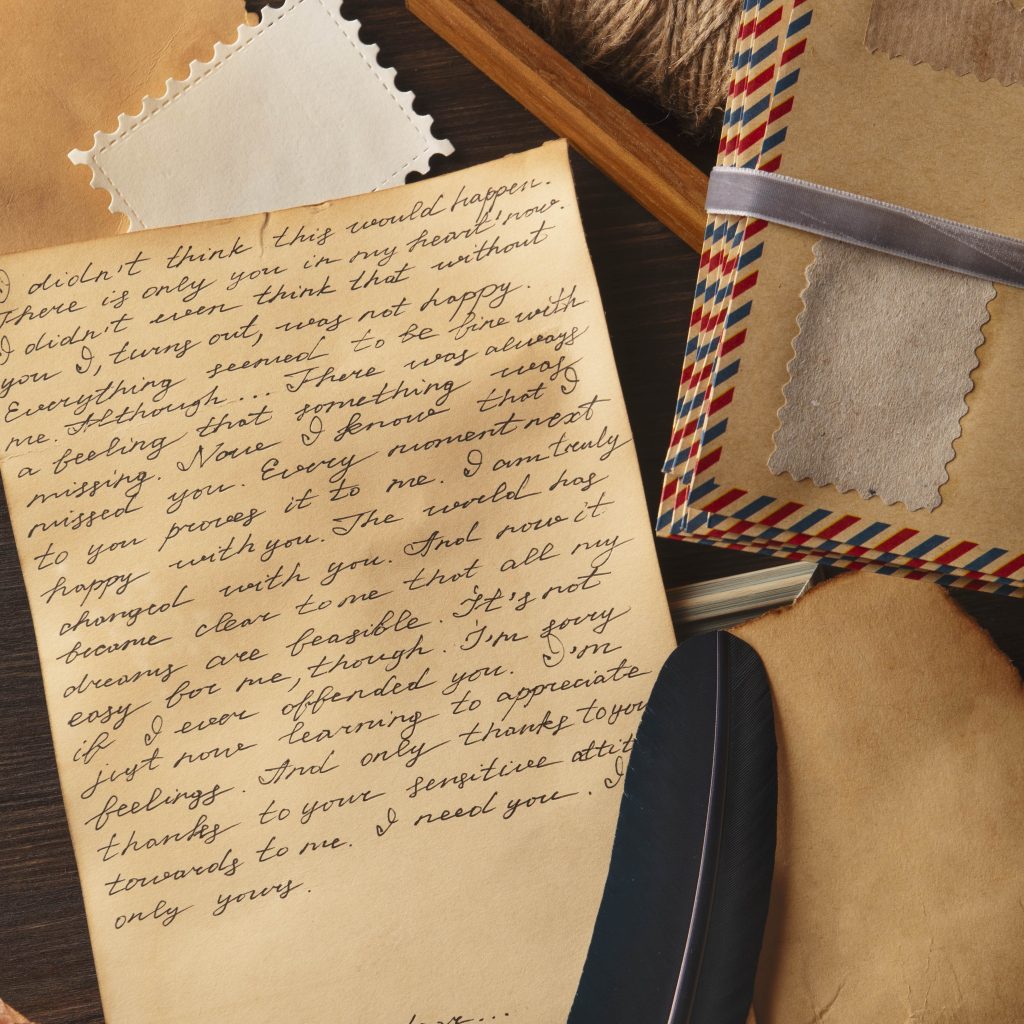 I didn't think this would happen.
There is only you in my heart now.
I didn't even think that without
you I, turns out, was not happy.
Everything seemed to be fine with
me. Although... There was always
a feeling that something was
missing. Now I know that I
missed you. Every moment next
to you proves it to me. I am truly
happy with you. The world has
changed with you. And now it
became clear to me that all my
dreams are feasible. It's not
easy for me, though. I'm sorry
if I ever offended you. I'm
just now learning to appreciate
feelings. And only thanks to you
thanks to your sensitive attit
towards to me. I need you. I
only yours.